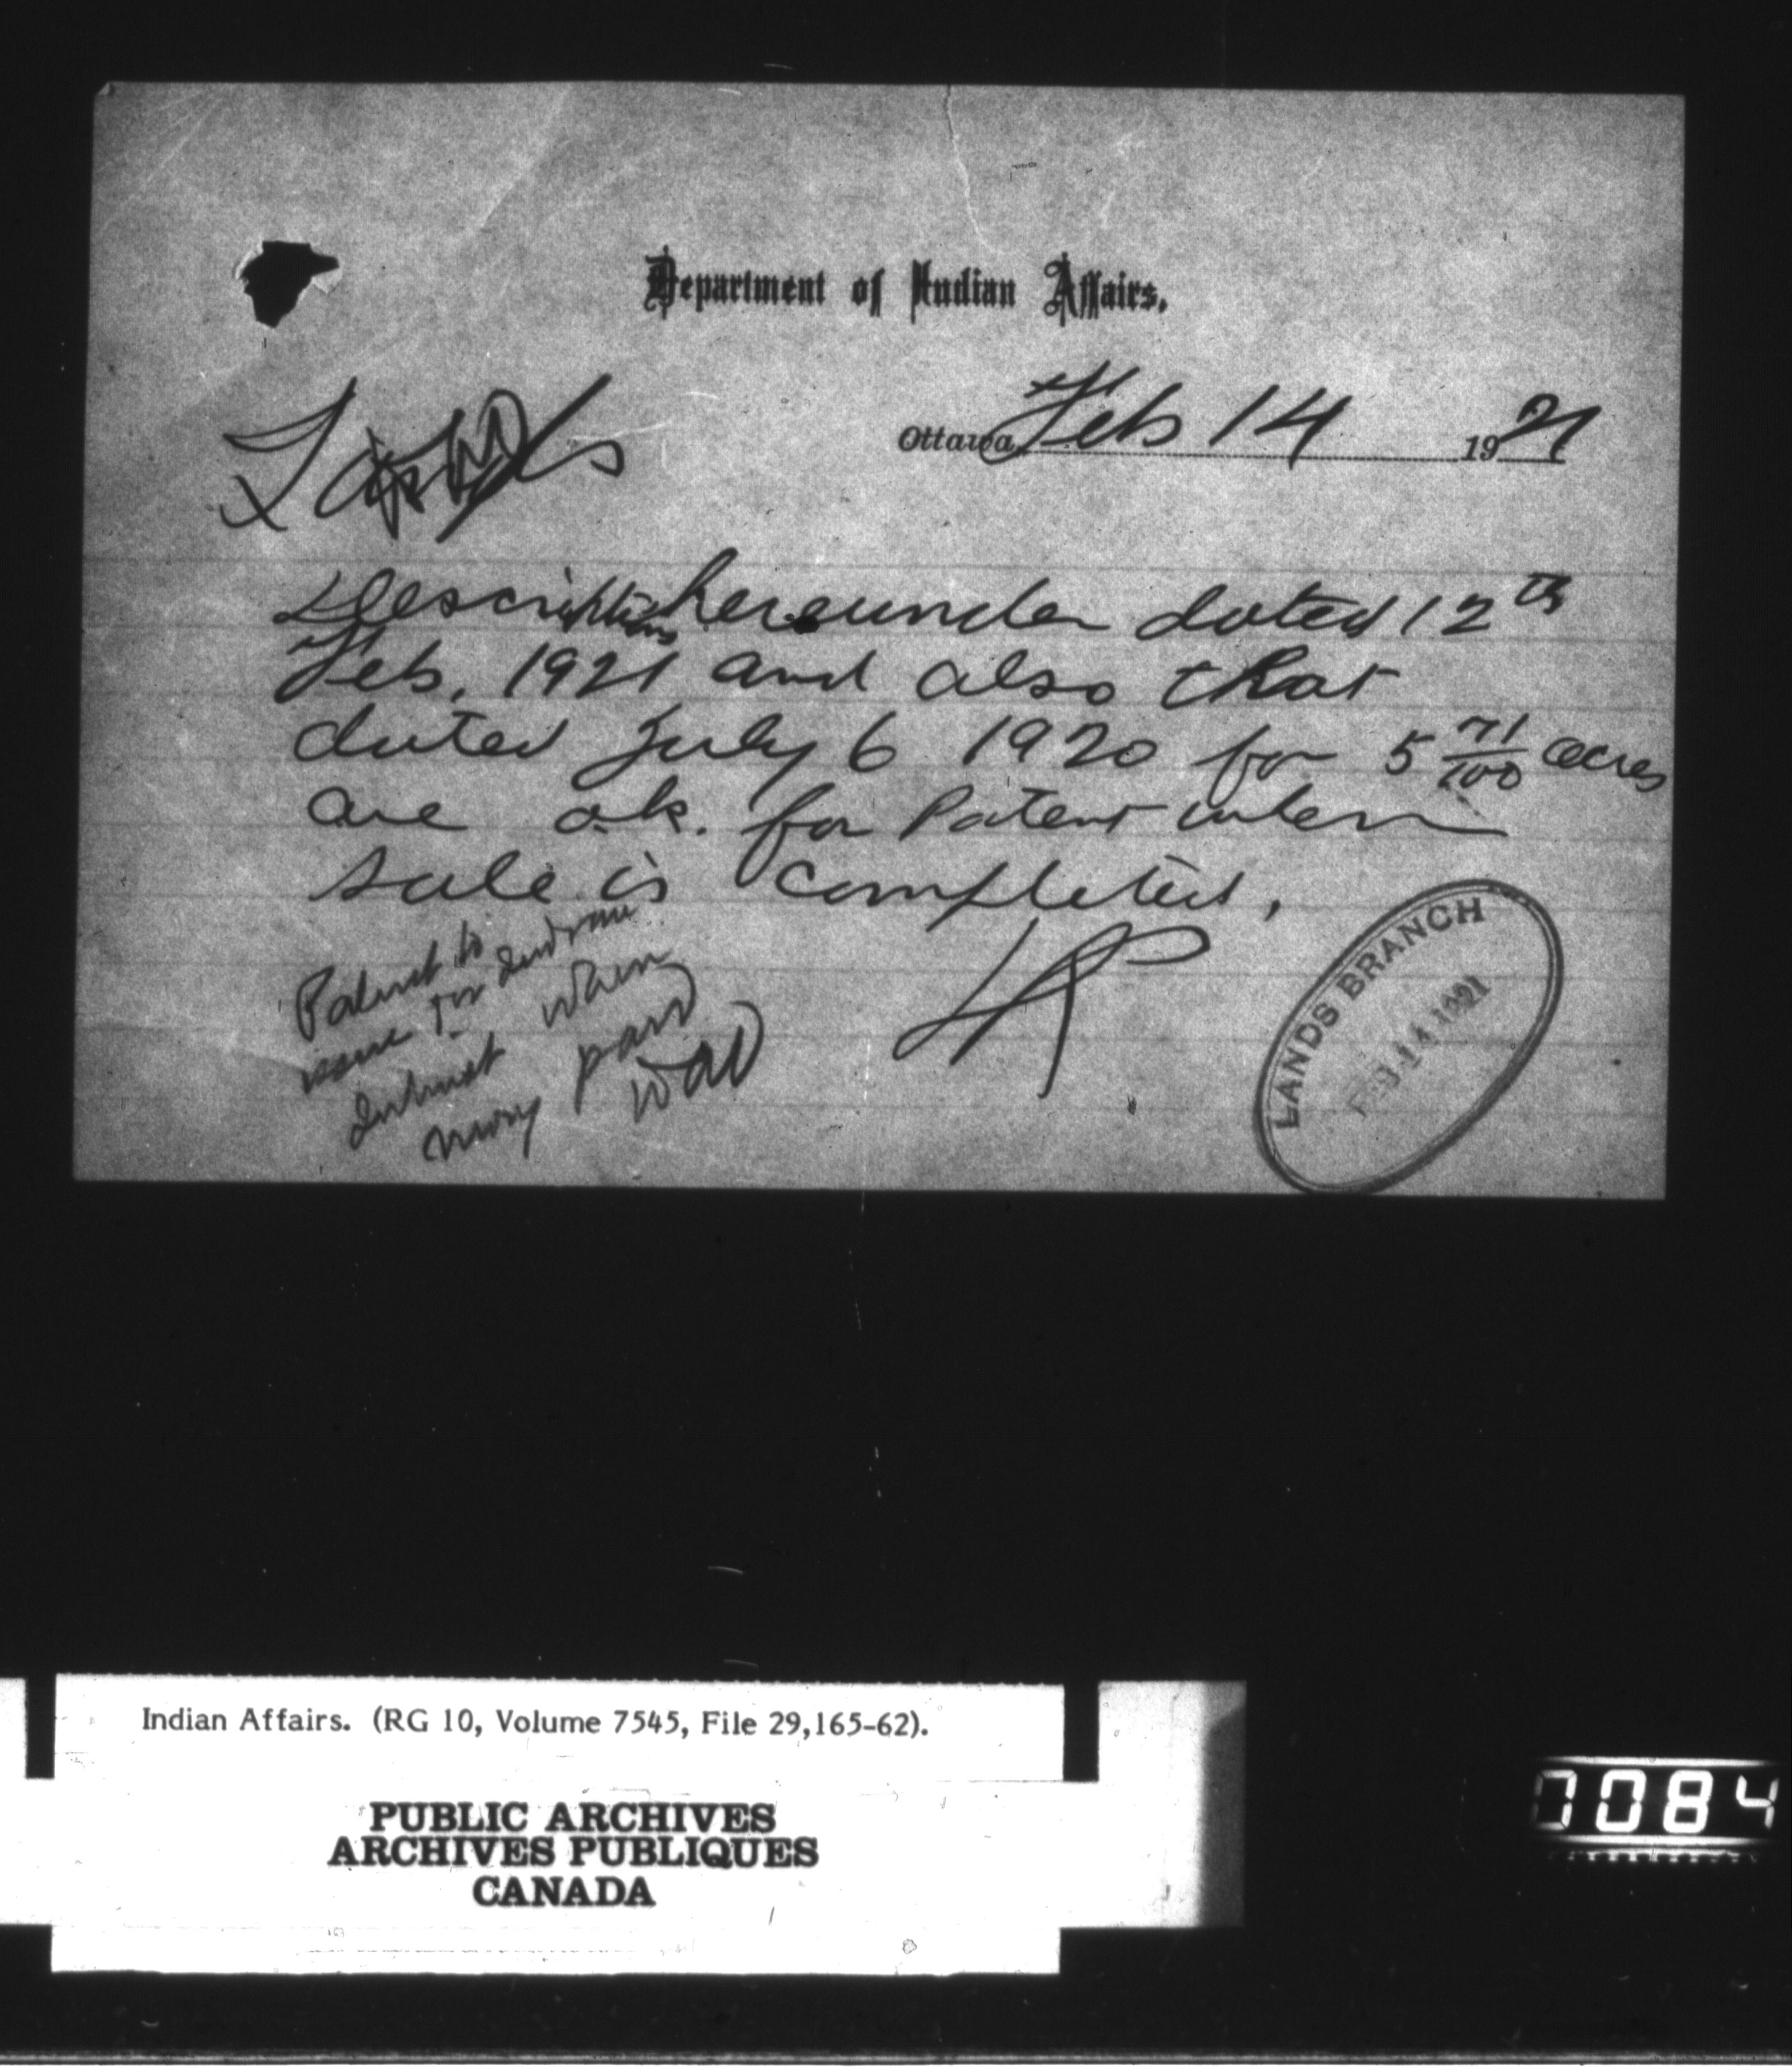 Department of Indian Affairs.
Ottawa Feb 14 1921
Lands
Description hereunder dated 12th
Feb. 1921 and also that
dated July 6 1920 for 5 71/100 acres
are o.k. for Patent when
sale is completed.
Patent to
issue for
when
money paid
LANDS BRANCH
FEB 14 1921
Indian Affairs. (RG 10, Volume 7545, File 29,165-62).
PUBLIC ARCHIVES
ARCHIVES PUBLIQUES
CANADA
0084